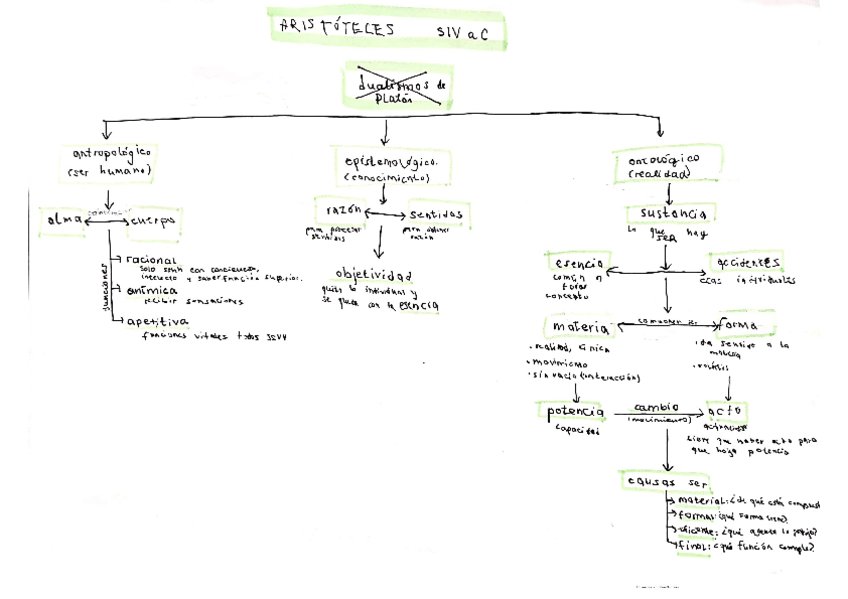 ARISTÓTELES SIV aC
dualismos de
Platón
antropológico
(ser humano)
epistemológico.
(conocimiento)
ontológico
(realidad)
alma
cuerpo
razón
sentidos
sustancia
para
sentidos
para
razón
lo que hay
SER
funciones
racional
solo
intelecto y
superior.
anímica
recibir sensaciones
apetitiva
funciones vitales todos
objetividad
quita lo individual y
se queda con la esencia
esencia
común a
todos
concepto
accidentes
individuales
materia
forma
realidad, única
movimiento
sin vacío (interacción)
da sentido a la
materia
potencia
cambio
acto
capacidad
(movimiento)
tiene que haber acto para
que haya potencia
causas ser
material: ¿de qué está
formal: ¿qué forma tiene?
eficiente: ¿qué agente lo
final: ¿qué función cumple?